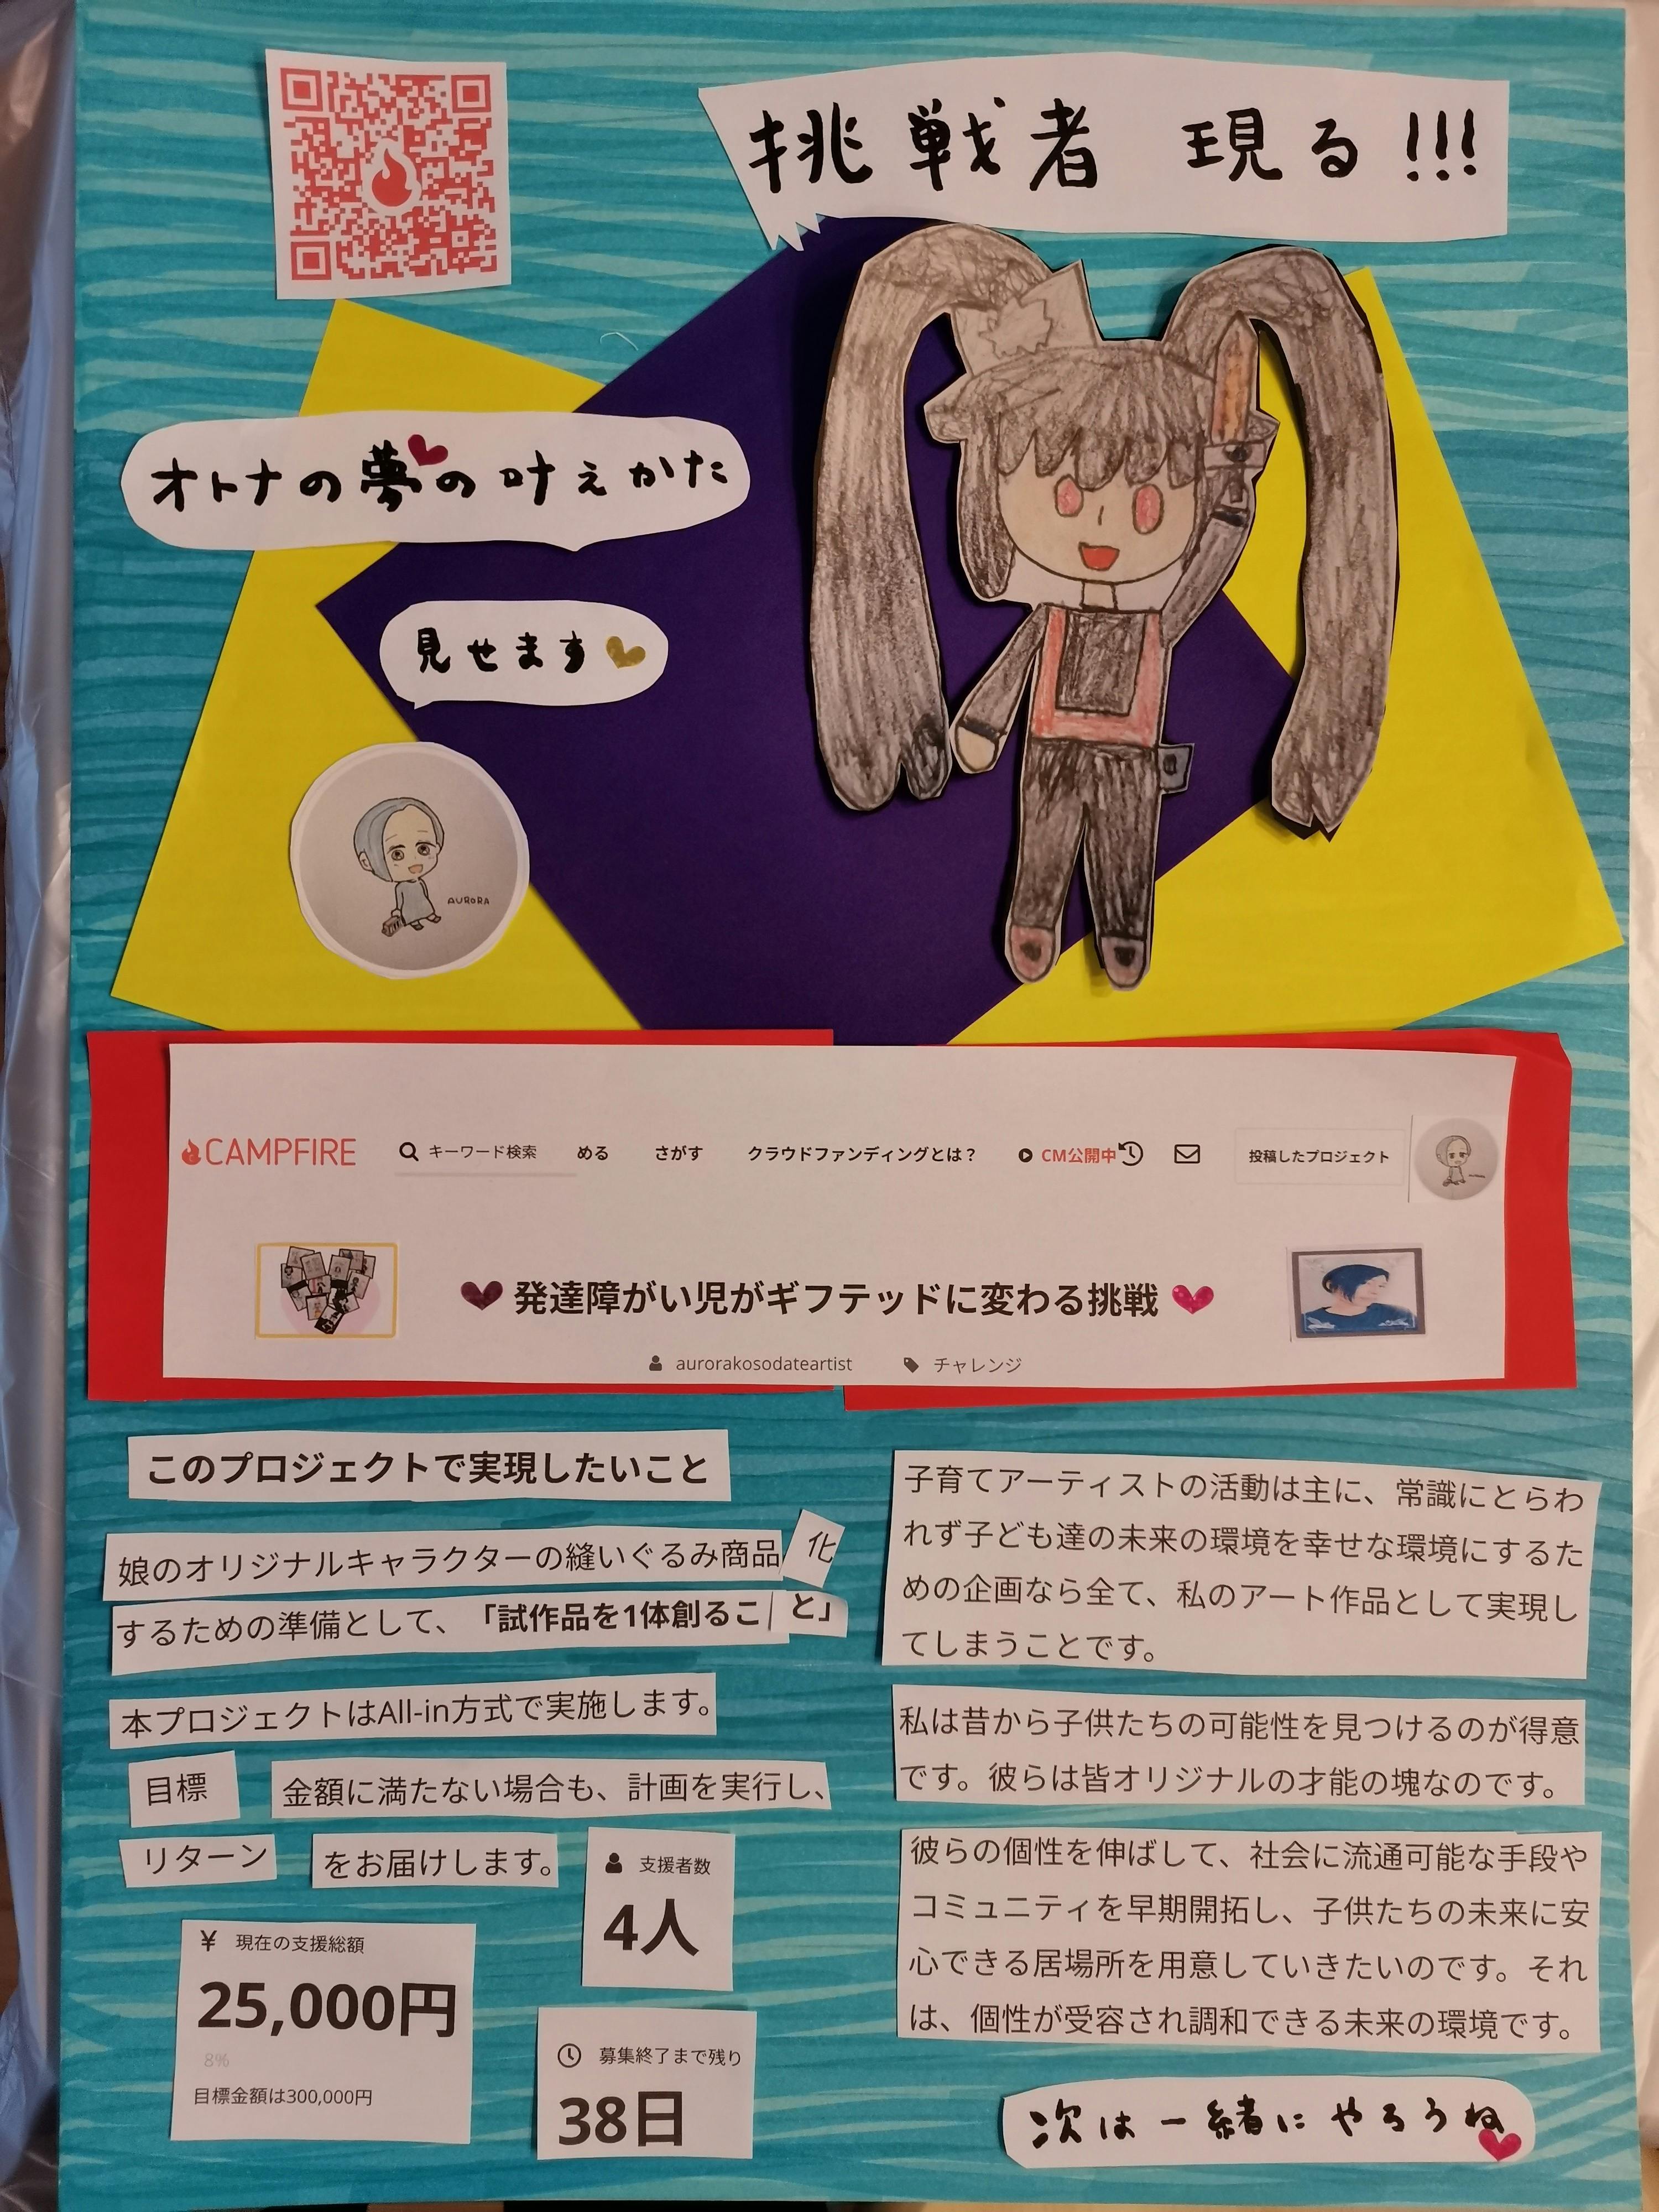 挑戦者 現る!!!
オトナの夢の叶えかた
見せます
AURORA
CAMPFIRE キーワード検索 める さがす クラウドファンディングとは? CM公開中 投稿したプロジェクト
発達障がい児がギフテッドに変わる挑戦
aurorakosodateartist チャレンジ
このプロジェクトで実現したいこと
娘のオリジナルキャラクターの縫いぐるみ商品化
するための準備として、「試作品を1体創ること」
本プロジェクトはAll-in方式で実施します。
目標 金額に満たない場合も、計画を実行し、
リターン をお届けします。
支援者数
4人
¥ 現在の支援総額
25,000円
8%
目標金額は300,000円
募集終了まで残り
38日
子育てアーティストの活動は主に、常識にとらわ
れず子ども達の未来の環境を幸せな環境にするた
めの企画なら全て、私のアート作品として実現し
てしまうことです。
私は昔から子供たちの可能性を見つけるのが得意
です。彼らは皆オリジナルの才能の塊なのです。
彼らの個性を伸ばして、社会に流通可能な手段や
コミュニティを早期開拓し、子供たちの未来に安
心できる居場所を用意していきたいのです。それ
は、個性が受容され調和できる未来の環境です。
次は一緒にやろうね